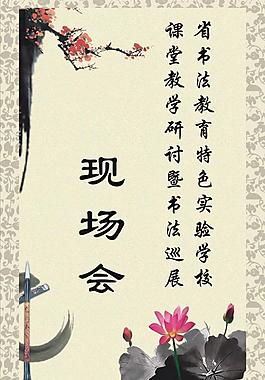 省书法教育特色实验学校
课堂教学研讨暨书法巡展
现场会